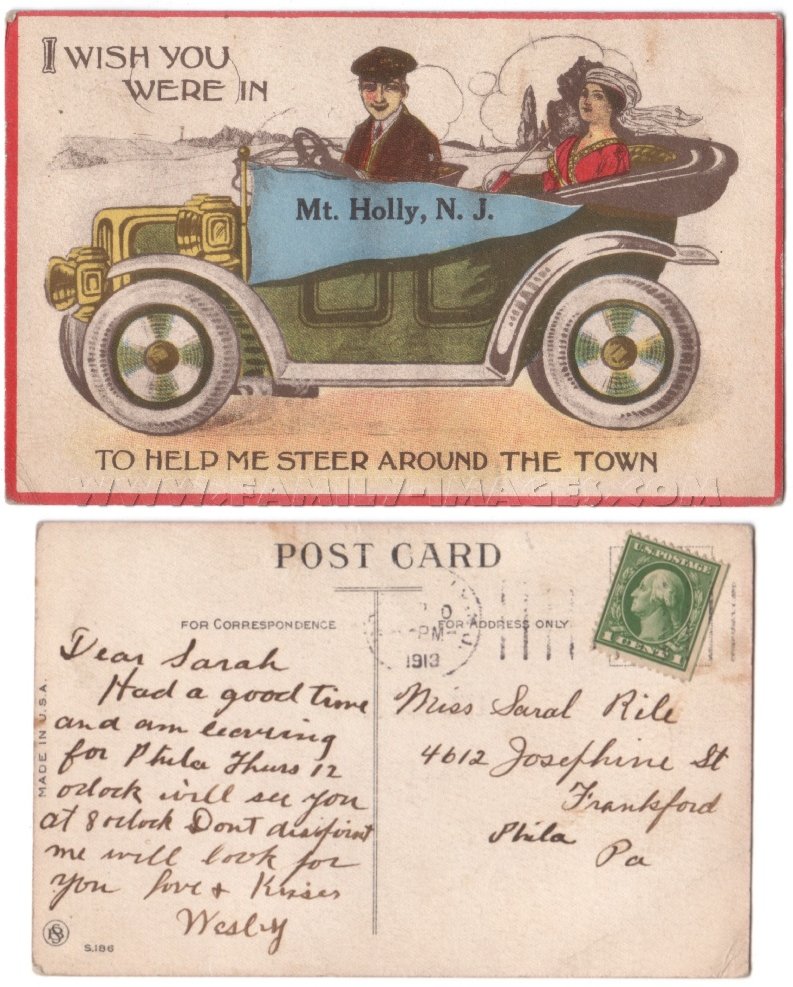 I WISH YOU
WERE IN
Mt. Holly, N. J.
TO HELP ME STEER AROUND THE TOWN
WWW.FAMILY-IMAGES.COM
POST CARD
FOR CORRESPONDENCE
FOR ADDRESS ONLY
PM
1913
U.S. POSTAGE
1 CENT 1
MADE IN U.S.A.
Dear Sarah
Had a good time
and am leaving
for Phila Thurs 12
oclock will see you
at 8 oclock Dont disipoint
me will look for
you love & Kisses
Wesley
Miss Saral Rile
4612 Josephine St
Frankford
Phila
Pa
S.186